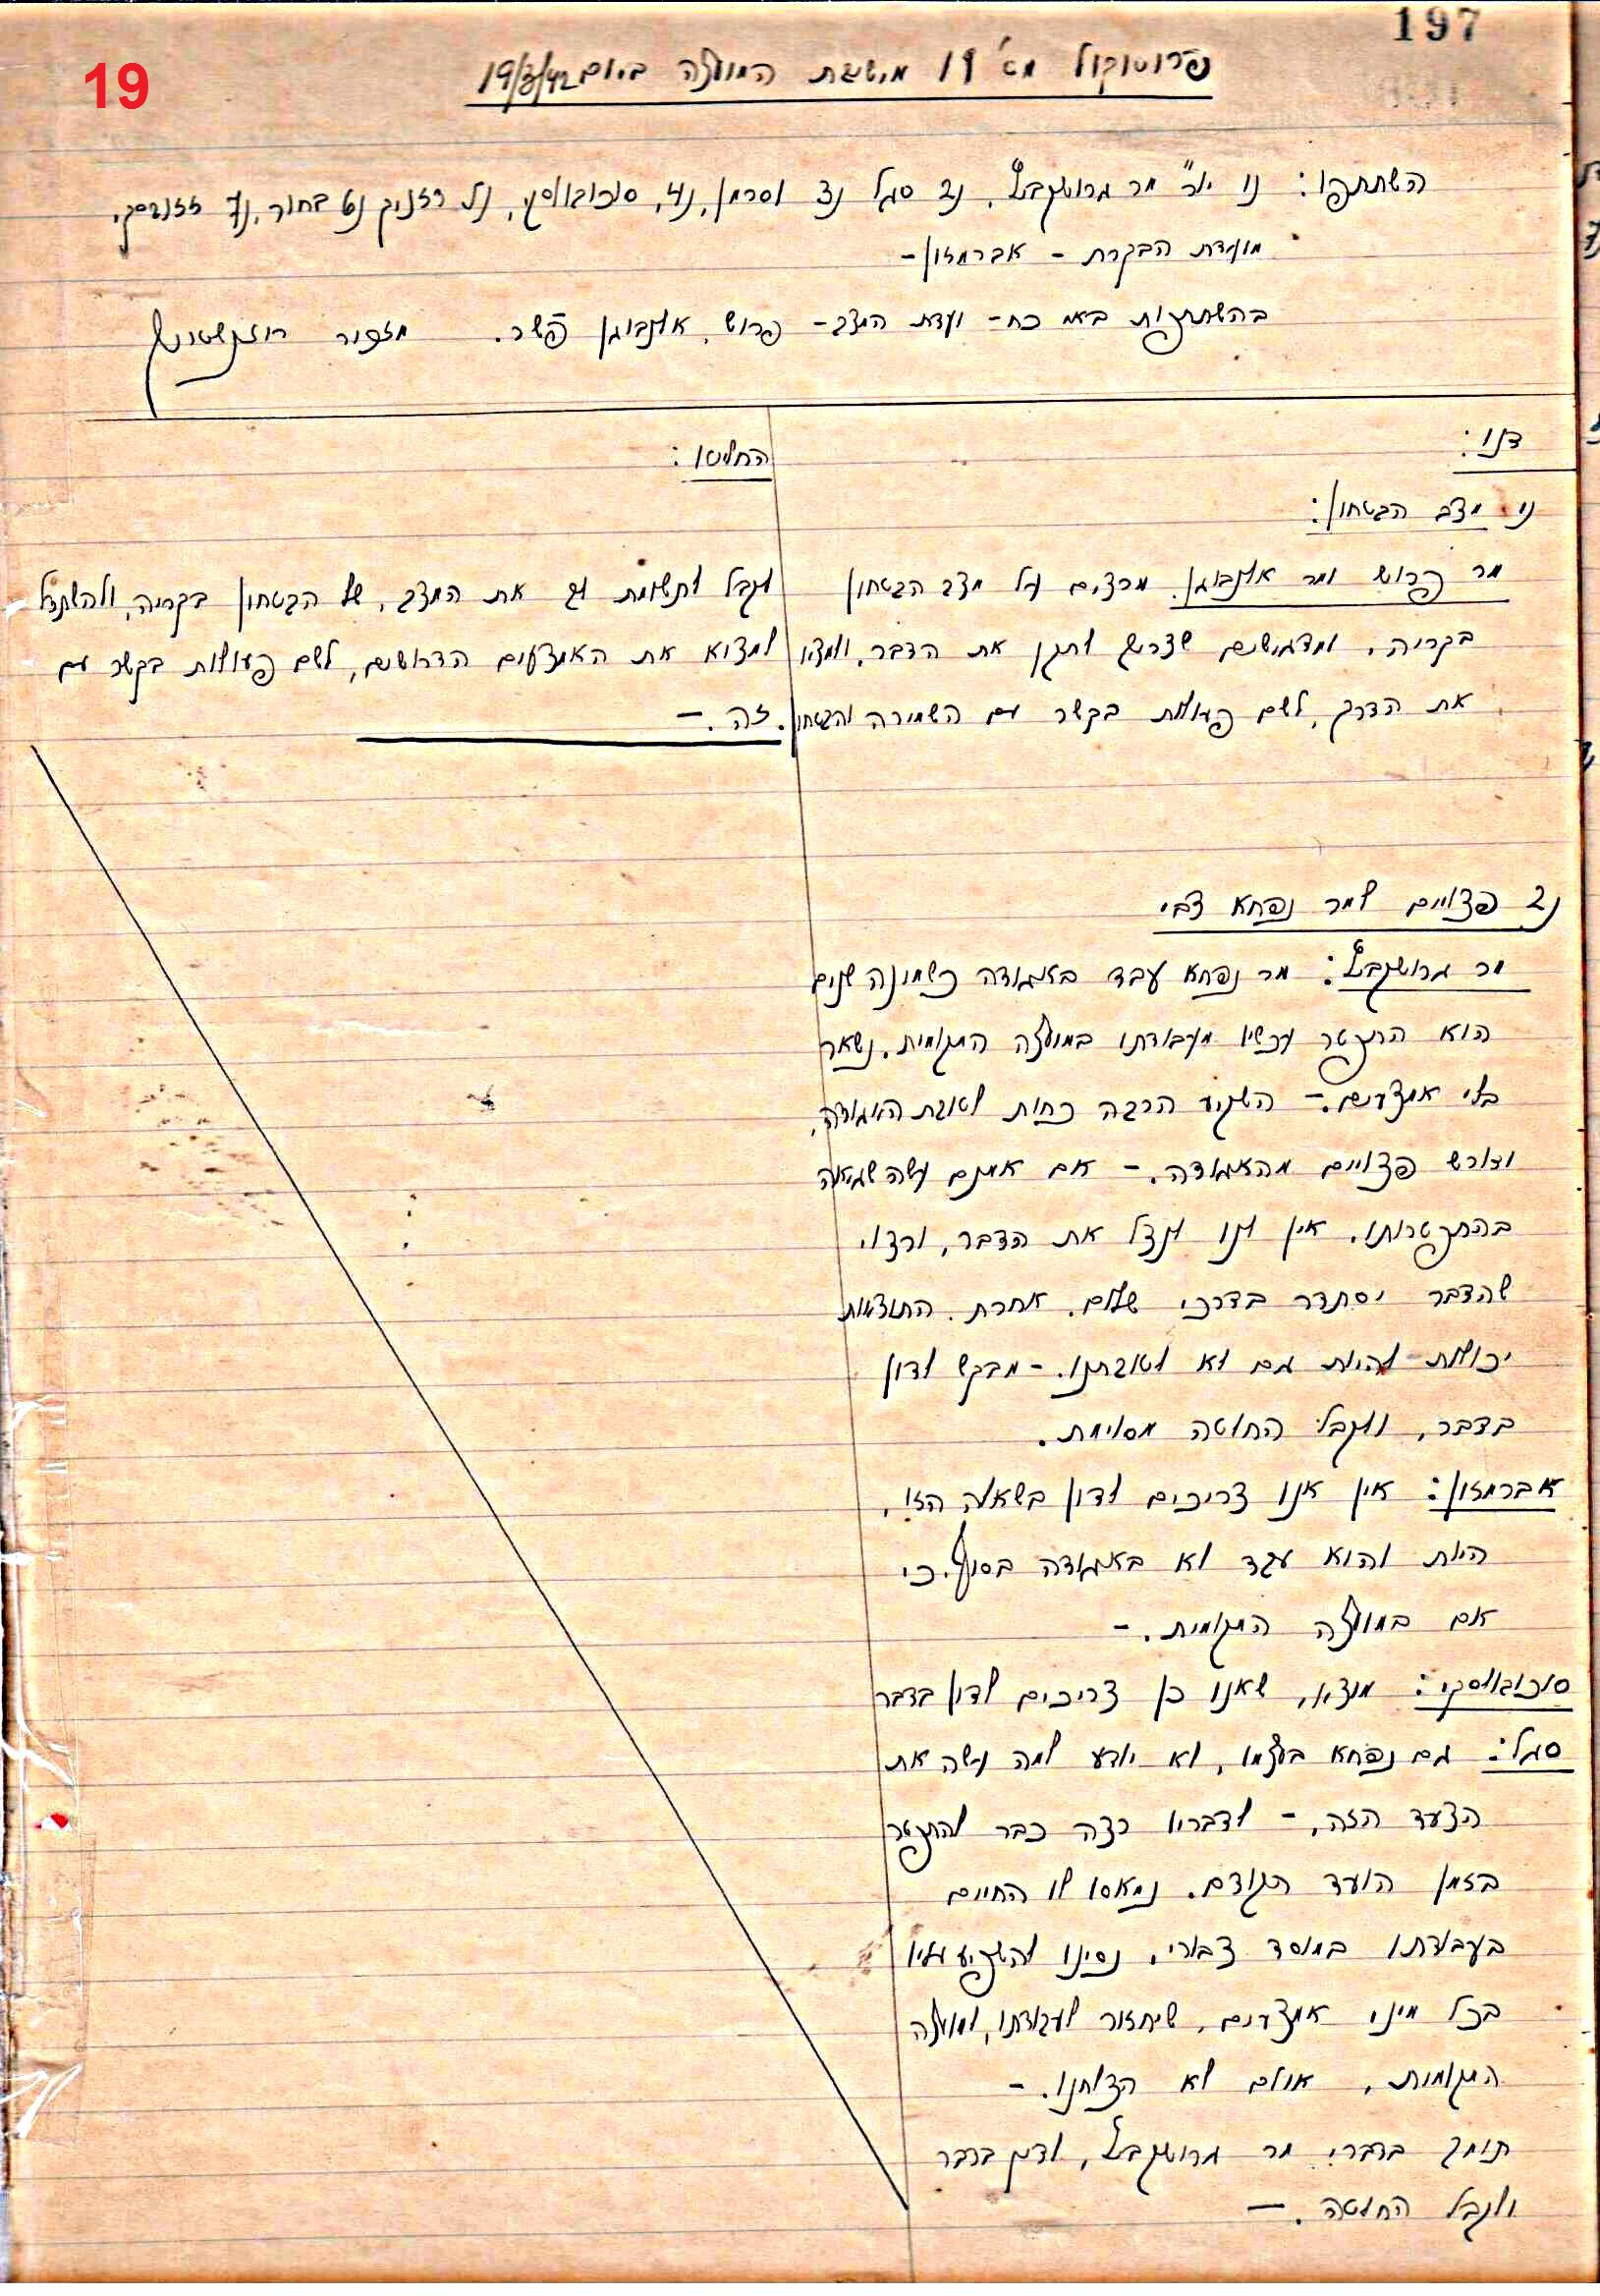 197
19
פרוטוקול מס' 19 מישיבת המועצה ביום 19/3/42
השתתפו: 1) יו"ר מר גרושקביץ, 2) סגל 3) וסרמן, 4) סוכובולסקי, 5) רזניק 6) בחור, 7)
מועדת הבקרת - אברמזון -
בהשתתפות באי כח - ועדת המצב - פרוש, אילנבוגן פשר. מזכיר רוזנשטרייך
דנו:
החליטו:
1) מצב הבטחון:
מר פרוש ומר אילנבוגן. מרצים על מצב הבטחון
בקריה, ומדגישים שצריך לתקן את הדבר, ולמצוא
את הדרך, לשם פעולות בקשר עם השמירה והבטחון.
לקבל לתשומת לב את המצב, של הבטחון בקריה, ולהשתדל
למצוא את האמצעים הדרושים, לשם פעולות בקשר עם
זה. -
2) פצויים למר נפחא צבי
מר גרושקביץ: מר נפחא עבד באגודה כשמונה שנים
הוא התפטר עכשיו מעבודתו במועצה המקומית. נשאר
בלי אמצעים. - השקיע הרבה כחות לטובת האגודה,
ודורש פצויים מהאגודה. - אם אמנם עשה שגיאה
בהתפטרותו, אין לנו לנצל את הדבר, ורצוי
שהדבר יסתדר בדרכי שלום. אחרת התוצאות
יכולות להיות גם לא לטובתנו. - מבקש לדון
בדבר, ולקבל החלטה מסוימת.
אברמזון: אין אנו צריכים לדון בשאלה הזו,
היות והוא עבד לא באגודה בסוף, כי
אם במועצה המקומית. -
סוכובולסקי: מוצא, שאנו כן צריכים לדון בדבר
סגל: גם נפחא בעצמו, לא יודע למה עשה את
הצעד הזה, - לדבריו רצה כבר להתפטר
בזמן הועד הקודם. נמאסו לו החיים
בעבודתו במוסד צבורי. נסינו להשפיע עליו
בכל מיני אמצעים, שיחזור לעבודתו, למועצה
המקומית, אולם לא הצלחנו. -
תומך בדברי מר גרושקביץ, לדון בדבר
ולקבל החלטה. -